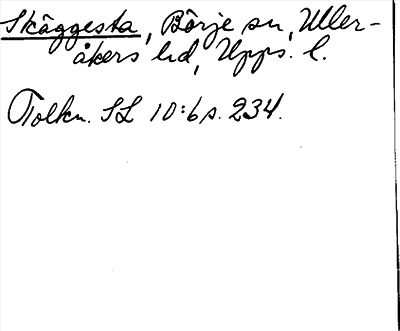 Skäggesta, Börje sn, Uller-
åkers hd, Upps. l.
Tolkn. SL 10:6 s. 234.